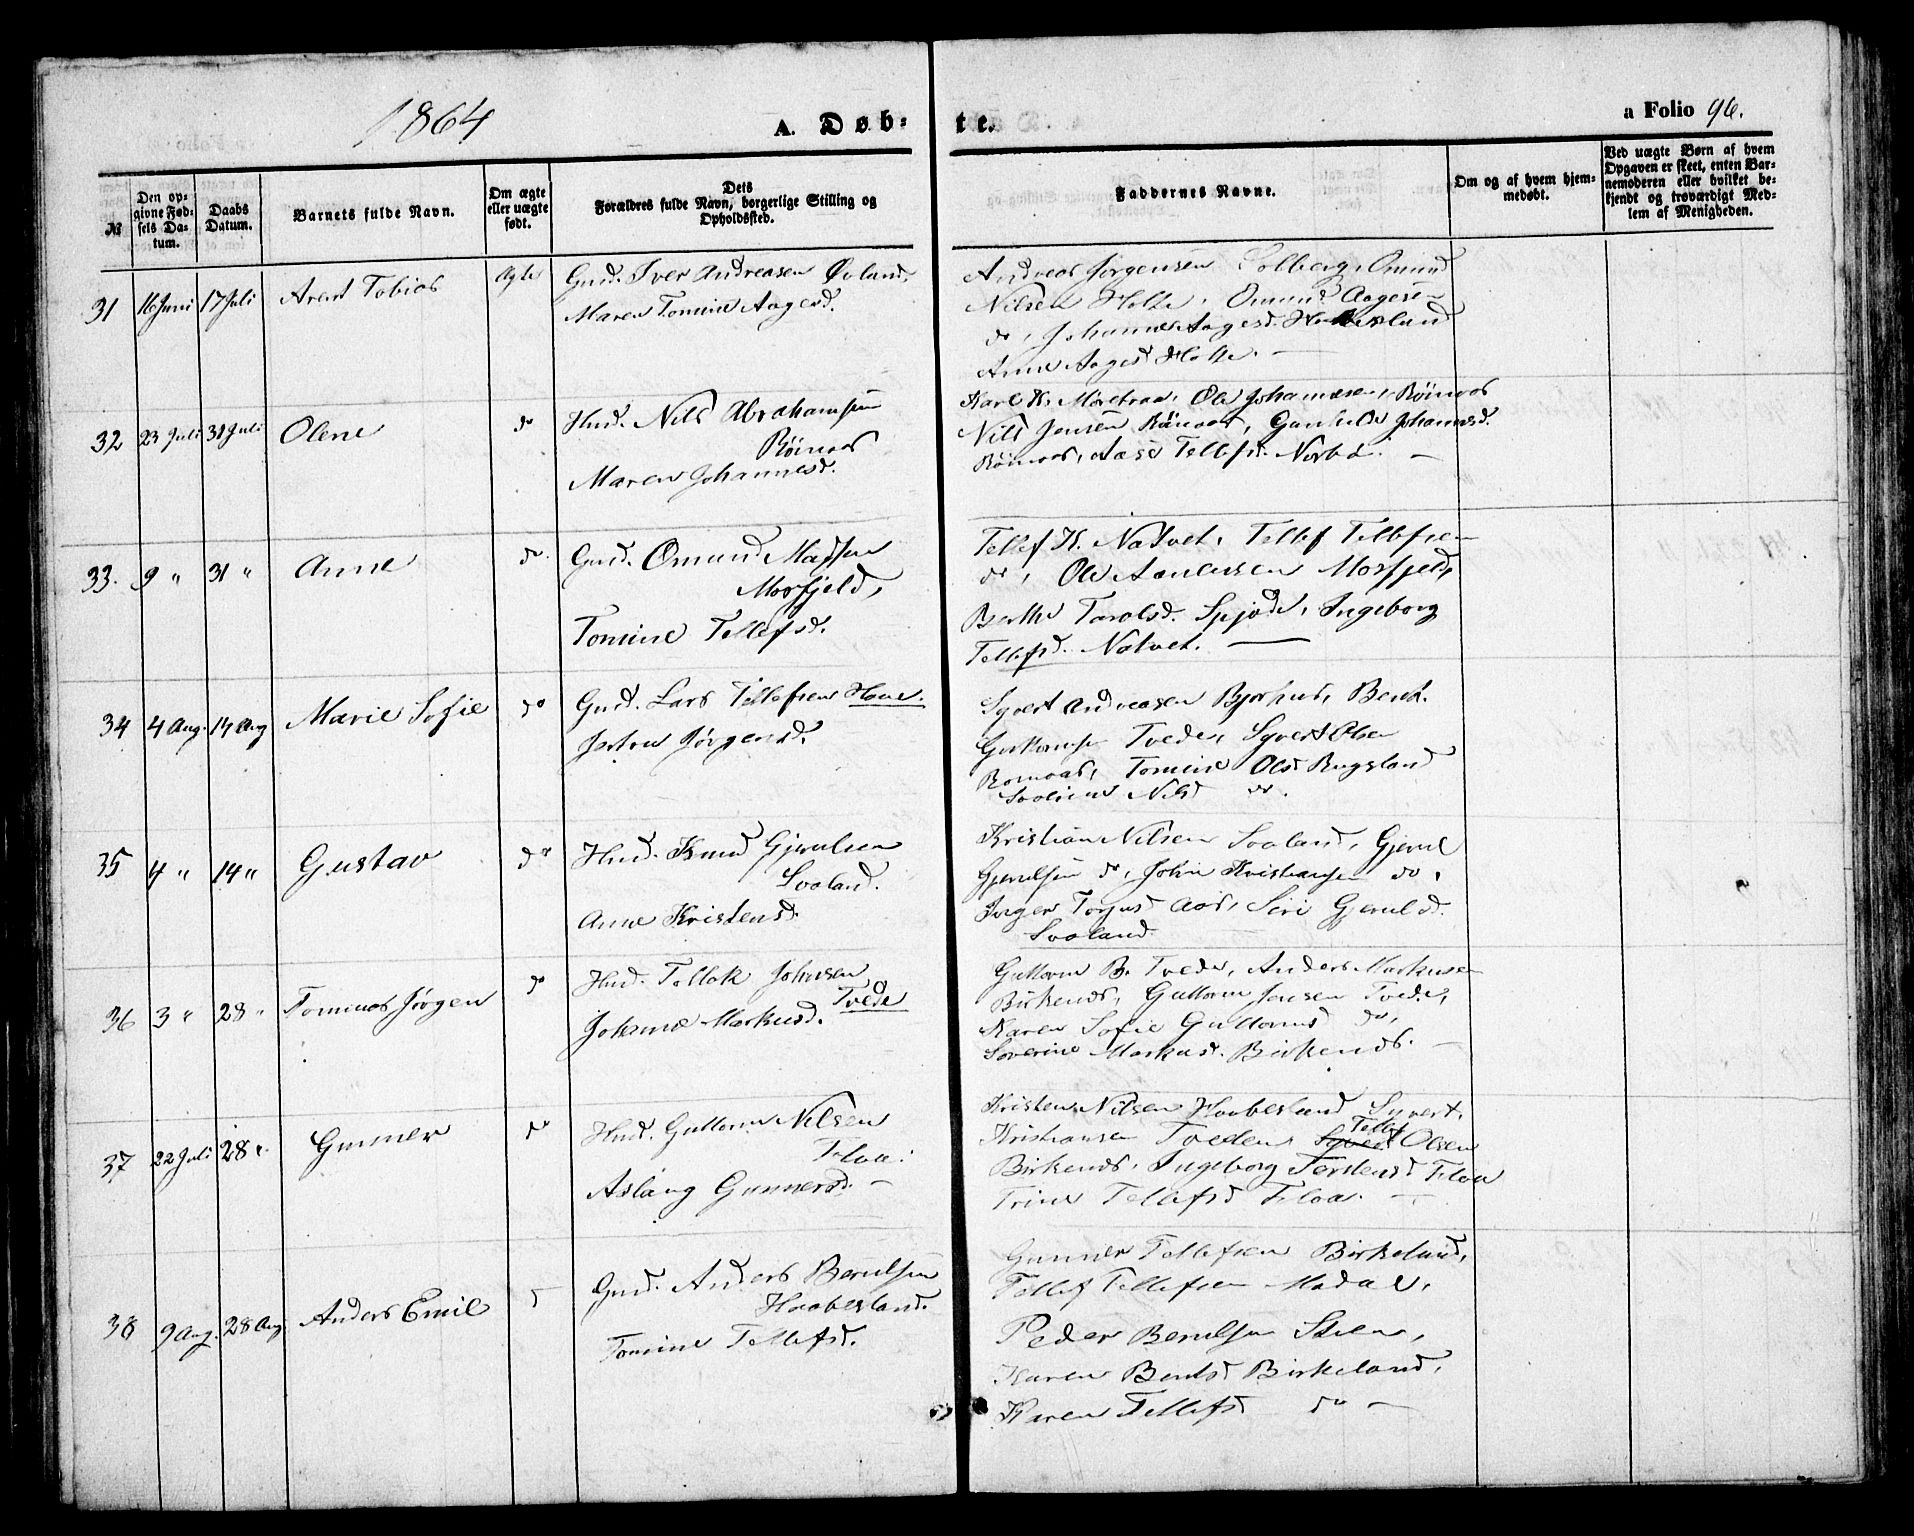 1864
A. Døb-
te.
a Folio 96.
№
Den op-
givne Fød-
sels Da-
tum.
Daabs
Datum.
Barnets fulde Navn.
Om ægte
eller uægte
født.
Dets
Forældres fulde Navn, borgerlige Stilling og
Opholdssted.
Faddernes Navne.
Om og af hvem hjem-
medøbt.
Ved uægte Børn af hvem
Opgaven er skeet, enten Bar-
nemoderen eller hvilket be-
kjendt og troværdigt Med-
lem af Menigheden.
31 16 Juni 17 Juli Arent Tobias Ægte
Gmd. Iver Andreasen Øvland,
Maren Tomine Aagesd.
Andreas Jörgensen Solberg, Omund
Nilsen Holte, Omund Aagesen
do, Johanne Aagesd.
Anne Aagesd Holte. —
32 23 Juli 31 Juli Olene do
Husd. Nils Abrahamsen
Röinaas
Maren Johannesd.
Karl K. Ole Johannesen, Röinaas
Nils Jensen Röinaas, Gunhilde Johannesd.
Röinaas, Aase Tellefsd. —
33. 9 " 31 " Anne do.
Gmd. Omund Madsen
Mosfjeld,
Tomine Tellefsd.
Tellef K. Natvet, Tellef Tellefsen
do, Ole Mosfjeld,
Berthe Tarolsd. Ingeborg
Tellefsd. Natvet. —
34 4 Aug. 14 Aug Marie Sofie do
Gmd. Lars Tellefsen
Jörgensd.
Syvert Andreasen Bjorhus, Bent
Guttormsen Tvede, Syvert Olsen
Tomine Olsd Rugsland
Nilsd do.
35 4 " 14 " Gustav do
Husd. Knud Gjerulsen
Svaland.
Anne Kristensd.
Kristian Nilsen Svaland, Gjerul
Gjerulsen do, John Kristiansen do,
Inger Torjusd Aas, Siri Gjerulsd.
Svaland
36 3 " 28 " Tominus Jörgen do
Husd. Tellak Johnsen
Tvede
Johanne Markusd.
Guttorm B. Tvede, Anders Markusen
Birkenes, Guttorm Jensen Tvede,
Karen Sofie Guttormsd do,
Severine Markusd. Birkenes. —
37 22 Juli 28 " Gunner do
Husd. Guttorm Nilsen
Floa.
Aslaug Gunnersd. —
Kristen Nilsen Haabesland Syvert
Tellef
Kristiansen Tveden, Syvert Olsen
Birkenes, Ingeborg Terstensd Floa
Trine Tellefsd Floa. —
38 9 Aug. 28 Aug Anders Emil d
Gmd. Anders Berulsen
Haabesland.
Tomine Tellefsd.
Gunner Tellefsen Birkeland,
Tellef Tellefsen
Peder Berulsen Steen,
Karen Bentsd Birkeland,
Karen Tellefsd do —